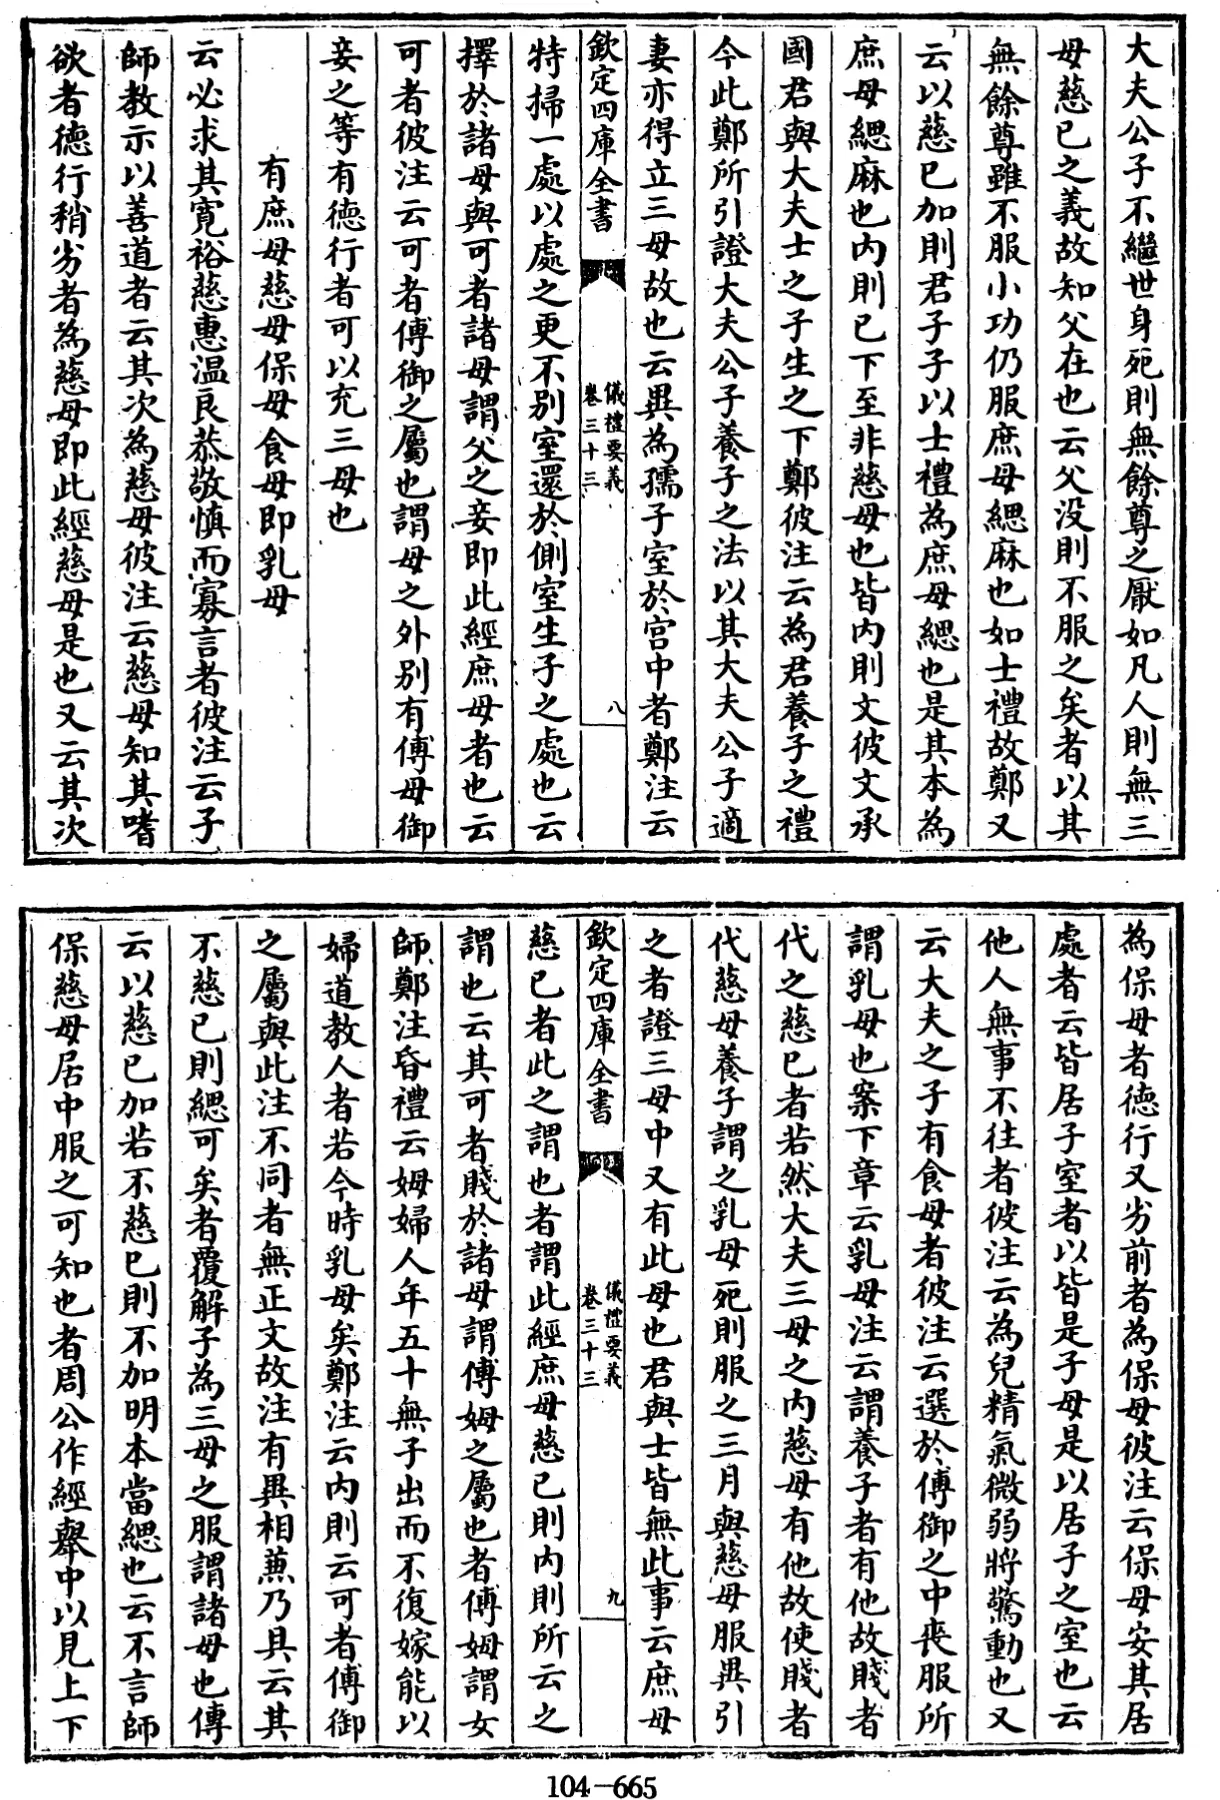 大夫公子不繼世身死則無餘尊之厭如凡人則無三
母慈已之義故知父在也云父没則不服之矣者以其
無餘尊雖不服小功仍服庶母緦麻也如士禮故鄭又
云以慈已加則君子子以士禮為庶母緦也是其本為
庶母緦麻也内則已下至非慈母也皆内則文彼文承
國君與大夫士之子生之下鄭彼注云為君養子之禮
今此鄭所引證大夫公子養子之法以其大夫公子適
妻亦得立三母故也云異為孺子室於宫中者鄭注云
欽定四庫全書
儀禮要義
卷三十三
八
特掃一處以處之更不别室還於側室生子之處也云
擇於諸母與可者諸母謂父之妾即此經庶母者也云
可者彼注云可者傅御之屬也謂母之外别有傅母御
妾之等有德行者可以充三母也
有庶母慈母保母食母即乳母
云必求其寛裕慈惠温良恭敬慎而寡言者彼注云子
師教示以善道者云其次為慈母彼注云慈母知其嗜
欲者德行稍劣者為慈母即此經慈母是也又云其次
為保母者德行又劣前者為保母彼注云保母安其居
處者云皆居子室者以皆是子母是以居子之室也云
他人無事不往者彼注云為兒精氣微弱將驚動也又
云大夫之子有食母者彼注云選於傅御之中喪服所
謂乳母也案下章云乳母注云謂養子者有他故賤者
代之慈已者若然大夫三母之内慈母有他故使賤者
代慈母養子謂之乳母死則服之三月與慈母服異引
之者證三母中又有此母也君與士皆無此事云庶母
欽定四庫全書
儀禮要義
卷三十三
九
慈已者此之謂也者謂此經庶母慈已則内則所云之
謂也云其可者賤於諸母謂傅姆之屬也者傅姆謂女
師鄭注昏禮云姆婦人年五十無子出而不復嫁能以
婦道教人者若今時乳母矣鄭注云内則云可者傅御
之屬與此注不同者無正文故注有異相兼乃具云其
不慈已則緦可矣者覆解子為三母之服謂諸母也傳
云以慈已加若不慈已則不加明本當緦也云不言師
保慈母居中服之可知也者周公作經舉中以見上下
104-665